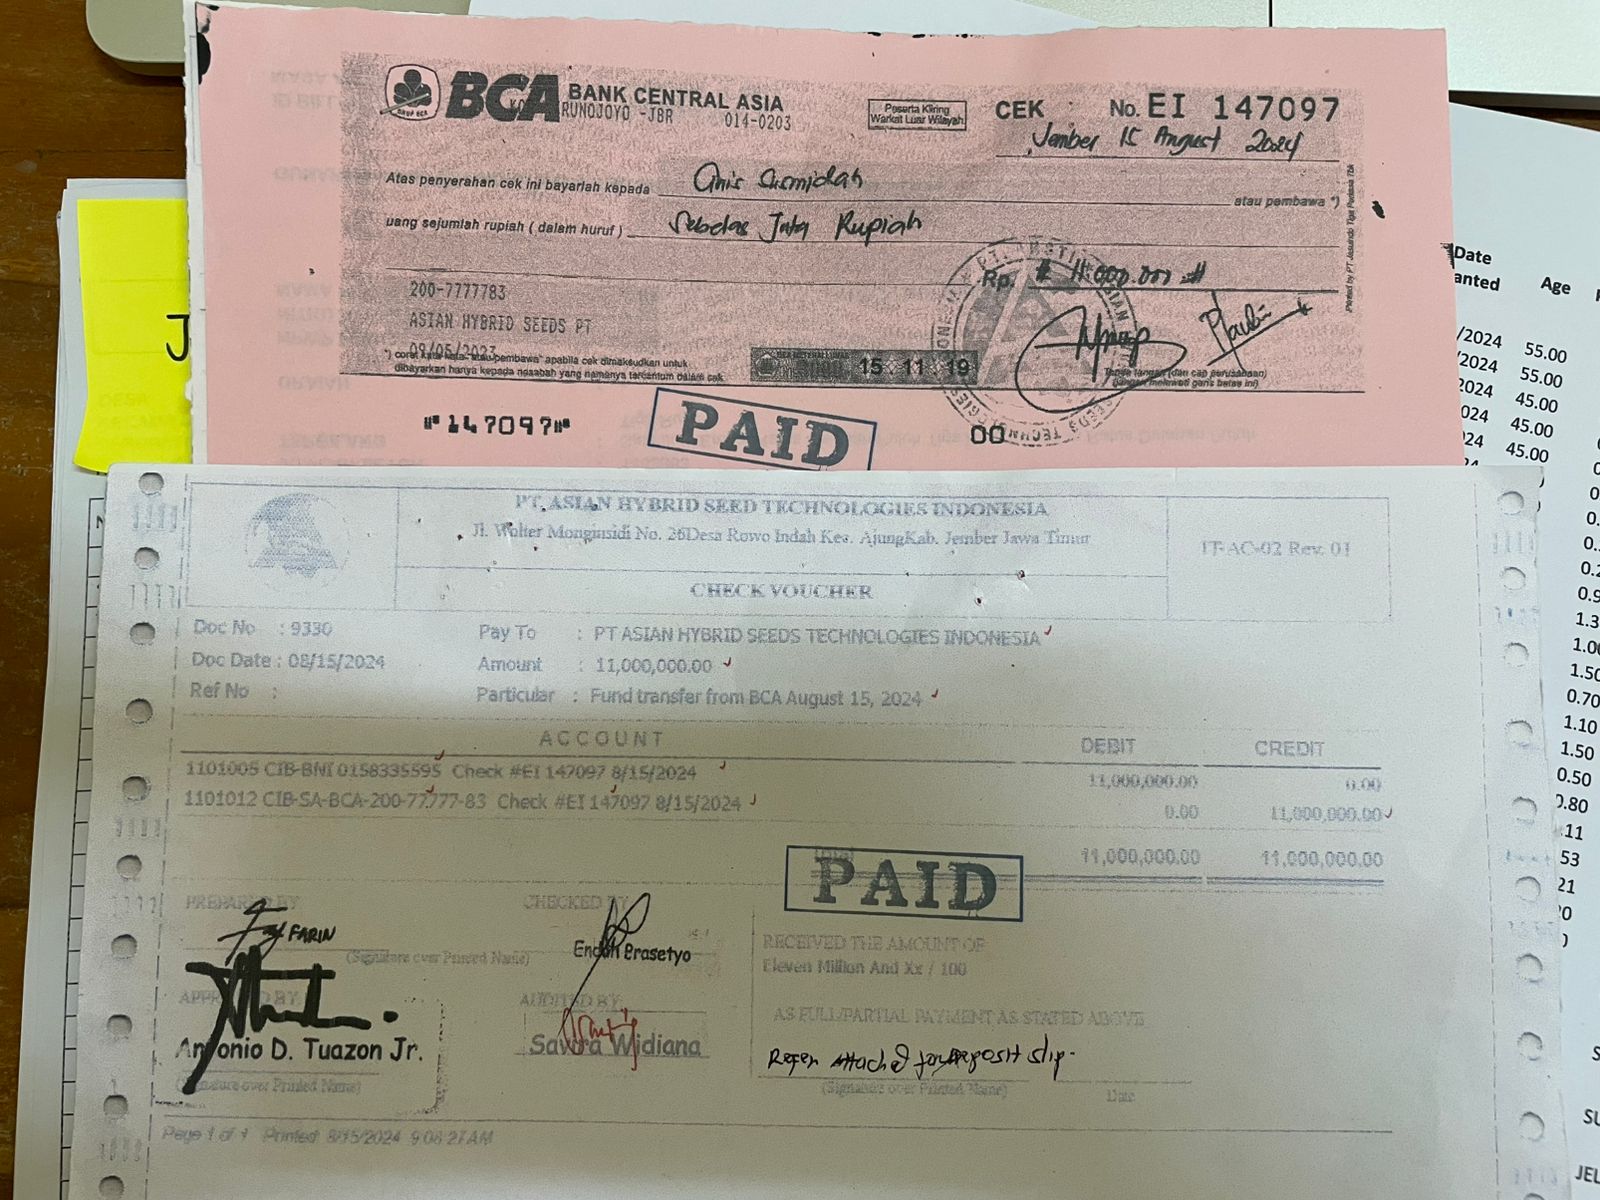 BCA BANK CENTRAL ASIA
RUNOJOYO -JBR 014-0203
Peserta Kliring
Warkat Luar Wilayah
CEK No. EI 147097
Jember 15 August 2024
Atas penyerahan cek ini bayarlah kepada Anis Susmidah atau pembawa *)
uang sejumlah rupiah ( dalam huruf ) Sebelas Juta Rupiah
Rp. # 11.000.000 #
200-7777783
ASIAN HYBRID SEEDS PT
09/05/2023
*) coret kata-kata "atau pembawa" apabila cek dimaksudkan untuk
dibayarkan hanya kepada nasabah yang namanya tercantum dalam cek
15 11 19
Tanda tangan (dan cap perusahaan)
(jangan melewati garis batas ini)
"147097"
00
PAID
J
Date
anted Age
/2024 55.00
/2024 55.00
2024 45.00
024 45.00
24 45.00
PT. ASIAN HYBRID SEED TECHNOLOGIES INDONESIA
Jl. Wolter Monginsidi No. 26Desa Rowo Indah Kec. AjungKab. Jember Jawa Timur
CHECK VOUCHER
IT-AC-02 Rev. 01
Doc No : 9330
Doc Date : 08/15/2024
Ref No :
Pay To : PT ASIAN HYBRID SEEDS TECHNOLOGIES INDONESIA
Amount : 11,000,000.00
Particular : Fund transfer from BCA August 15, 2024
ACCOUNT DEBIT CREDIT
1101005 CIB-BNI 0158335595 Check #EI 147097 8/15/2024 11,000,000.00 0.00
1101012 CIB-SA-BCA-200-77777-83 Check #EI 147097 8/15/2024 0.00 11,000,000.00
Total 11,000,000.00 11,000,000.00
PAID
PREPARED BY
FARIN
(Signature over Printed Name)
CHECKED BY
Endah Prasetyo
APPROVED BY:
Antonio D. Tuazon Jr.
(Signature over Printed Name)
AUDITED BY:
Savira Widiana
RECEIVED THE AMOUNT OF
Eleven Million And Xx / 100
AS FULL/PARTIAL PAYMENT AS STATED ABOVE
Refer attached for deposit slip.
(Signature over Printed Name)
Date
Page 1 of 1 Printed 8/15/2024 9:08:27AM
1.50
0.70
1.10
1.50
0.50
0.80
.11
53
21